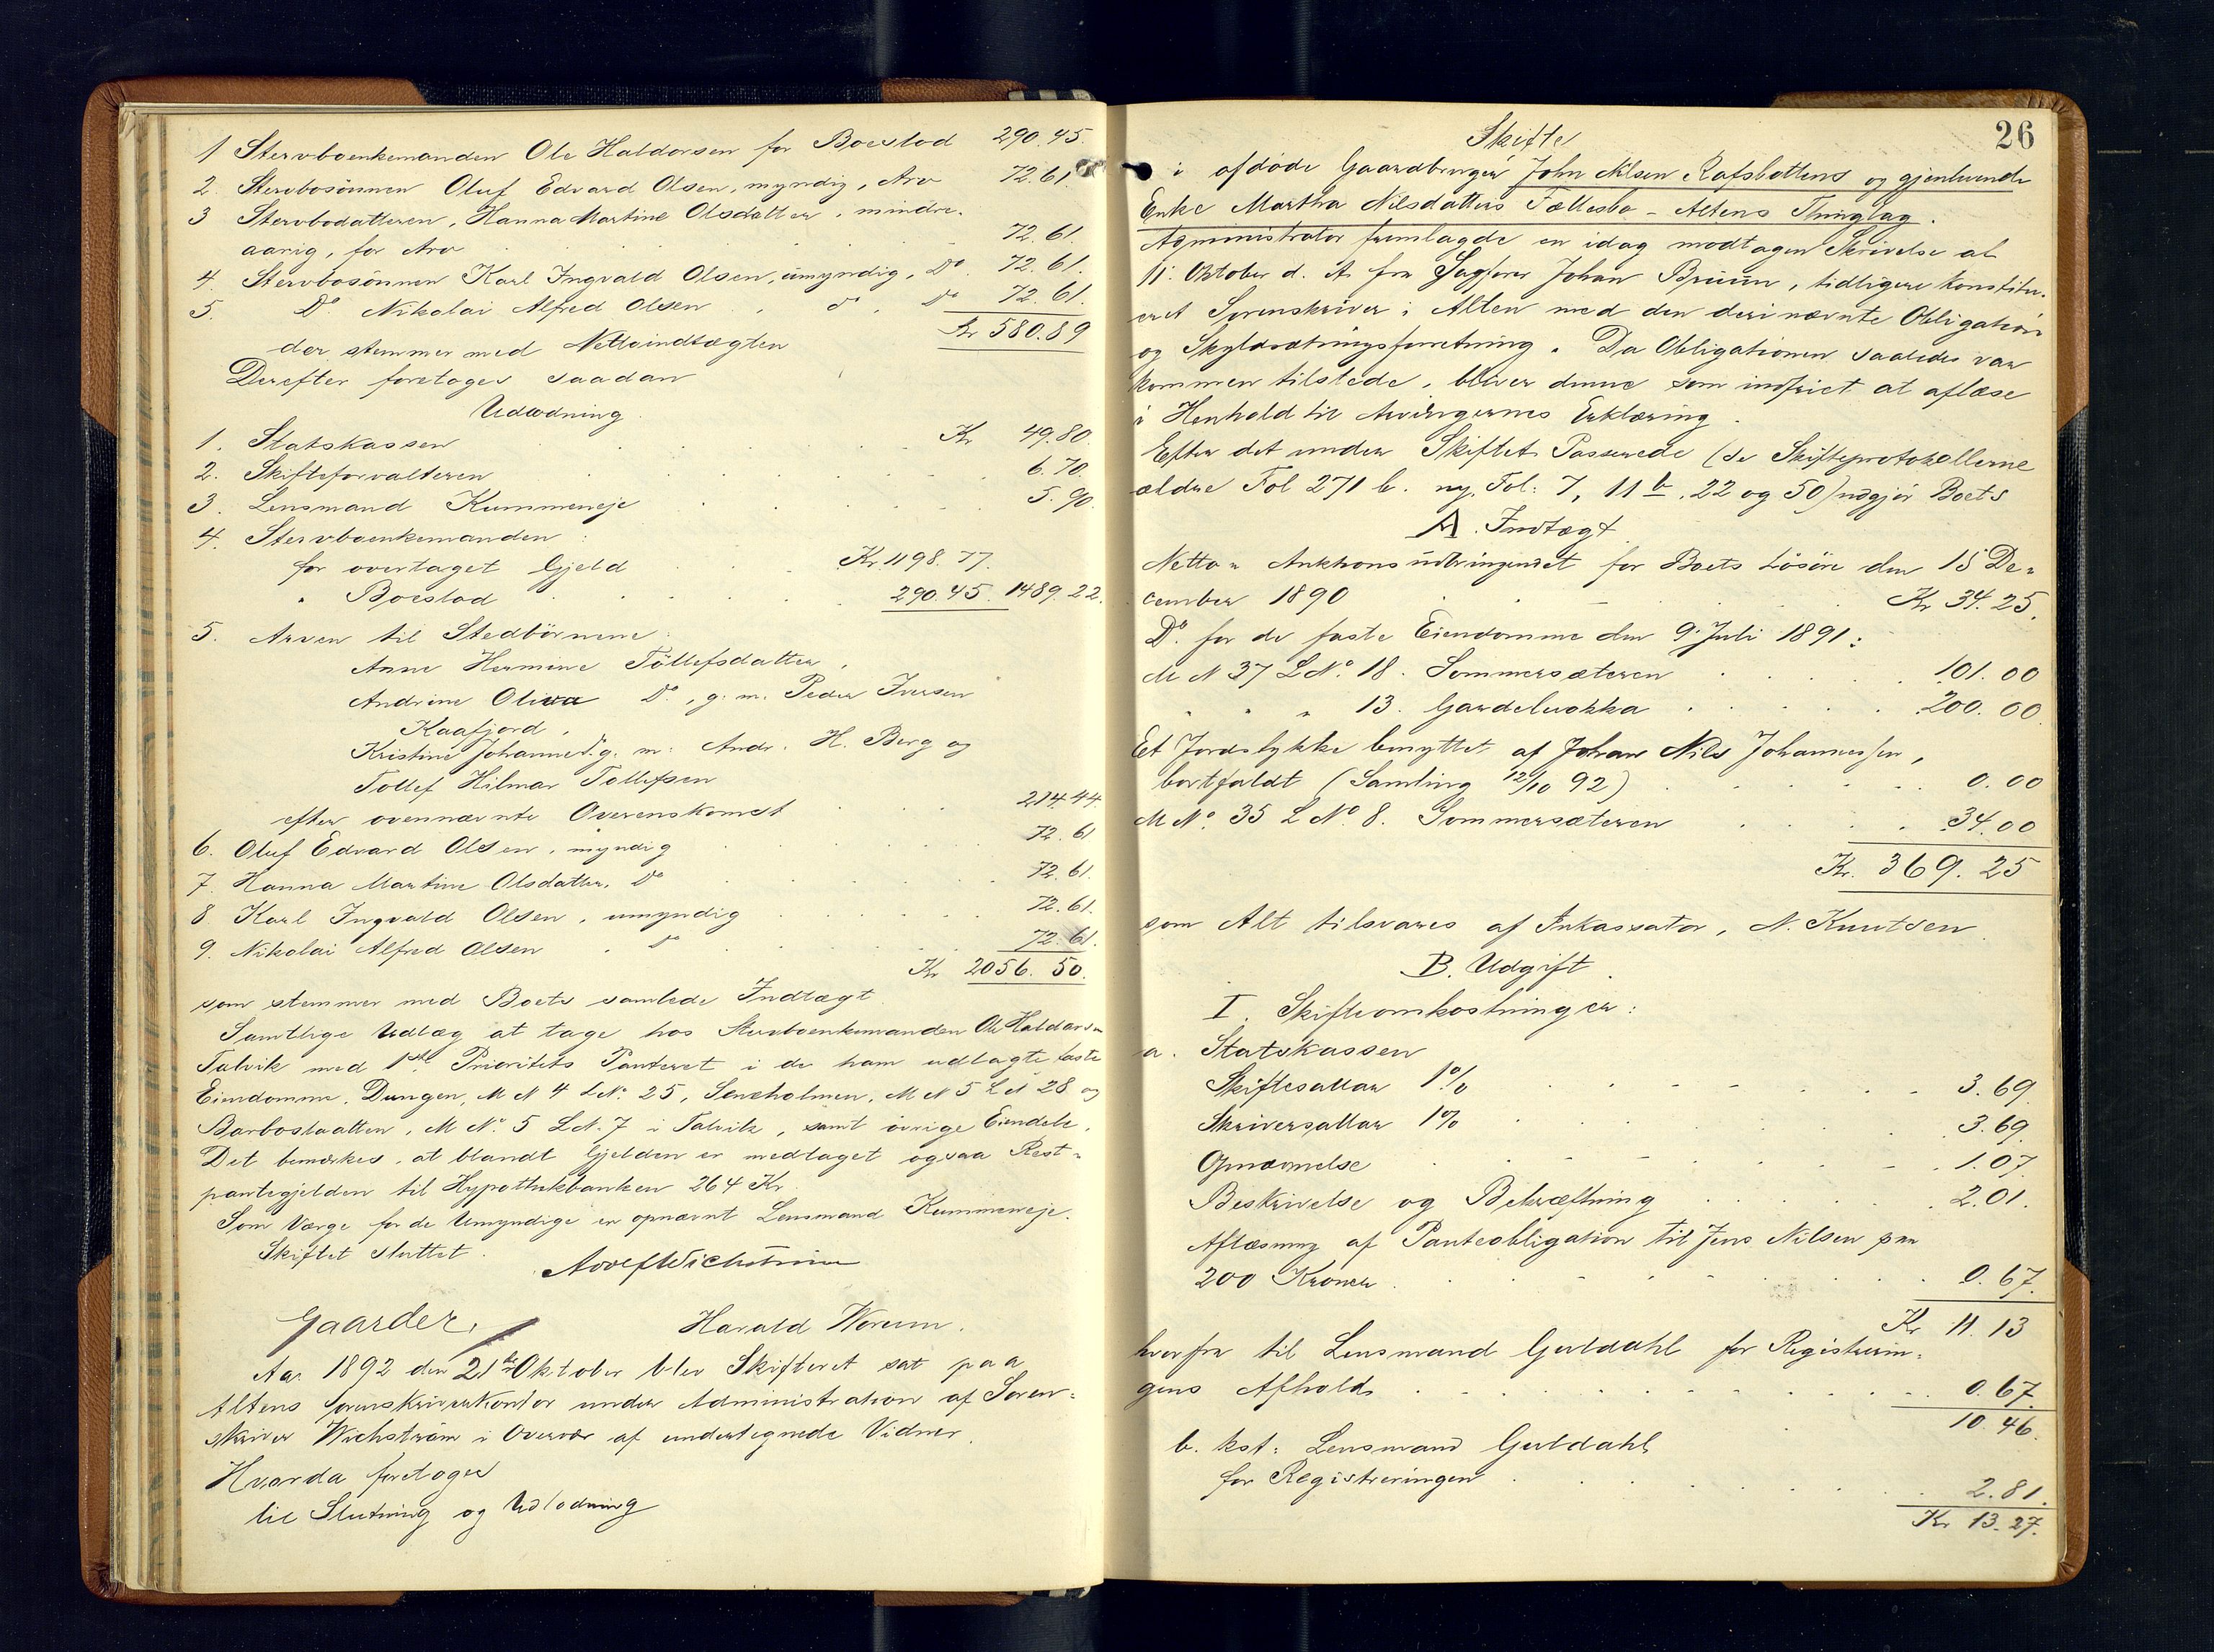 1 Stervboenkemanden Ole Haldorsen for Boeslod 290.45.
2. Stervbosönnen Oluf Edvard Olsen, myndig, Arv 72.61.
3 Stervbodatteren, Hanna Martine Olsdatter, mindre-
aarig, for Arv 72.61.
4. Stervbosönnen Karl Ingvald Olsen, umyndig, Do. 72.61.
5. Do. Nikolai Alfred Olsen, do, Do 72.61.
der stemmer med Nettoindtægten Kr 580.89
Derefter foretoges saadan
Udlodning.
1. Statskassen Kr 49.80.
2. Skifteforvalteren 6.70.
3. Lensmand Kummeneje 5.90.
4. Stervboenkemanden:
for overtaget Gjeld Kr 1198.77.
" Boeslod 290.45. 1489.22.
5. Arven til Stedbörnene:
Anne Hermine Töllefsdatter,
Andrine Oliva Do., g. m. Peder Iversen
Kaafjord,
Kristine Johanne Do. g. m. Andr. H. Berg og
Tollef Hilmar Tollefsen
efter ovennævnte Overenskomst 214.44.
6. Oluf Edvard Olsen, myndig 72.61
7. Hanna Martine Olsdatter, Do 72.61.
8 Karl Ingvald Olsen, umyndig 72.61.
9. Nikolai Alfred Olsen, do 72.61.
Kr 2056.50.
som stemmer med Boets samlede Indtægt.
Samtlige Udlæg at tage hos Stervboenkemanden Ole Haldorsen
Talvik med 1ste Prioritets Panteret i de ham udlagte faste
Eiendomme, Dungen, M N 4 L No. 25, Senholmen, M N 5 L N 28 og
Barboslaatten, M No. 5 L N. 7 i Talvik, samt övrige Eiendele.
Det bemærkes, at blandt Gjelden er medtaget ogsaa Rest-
pantegjelden til Hypothekbanken 264 Kr.
Som Værge for de Umyndige er opnævnt Lensmand Kummeneje.
Skiftet sluttet.
Adolf Wichstrøm
Gaarder, Harald Worum.
Aar 1892 den 21de Oktober blev Skifteret sat paa
Altens Sorenskriverkontor under Administration af Soren-
skriver Wichström i Overvær af undertegnede Vidner.
Hvorda foretoges
til Slutning og Udlodning
26
Skifte
i afdöde Gaardbruger John Nilsen Rafsbottens og gjenlevende
Enke Martha Nilsdatters Fællesbo - Altens Thinglag.
Administrator fremlagde en idag modtagen Skrivelse af
11. Oktober d. A. fra Sagfører Johan Bruun, tidligere konstitu-
eret Sorenskriver i Alten med den deri nævnte Obligation
og Skyldsætningsforretning. Da Obligationen saaledes var
kommen tilstede, bliver denne som indfriet at aflæse
i Henhold til Arvingernes Erklæring.
Efter det under Skiftet Passerede (se Skifteprotokollerne
ældre Fol 271 b. ny Fol: 7, 11 b, 22 og 50) udgjör Boets
A. Indtægt
Netto-Auktionsudbringendet for Boets Lösöre den 15 De-
cember 1890 Kr 34.25.
Do. for de faste Eiendomme den 9. Juli 1891:
M N 37 L No. 18. Sommersæteren 101.00
" " " 13. Gardeluokka 200.00.
Et Jordstykke benyttet af Johan Nils Johannessen,
bortfaldt (Samling 12/10 92) 0.00
M No. 35 L No 8. Sommersæteren 34.00
Kr. 369.25
som Alt tilsvares af Inkassator, N. Knutsen.
B. Udgift.
I. Skifteomkostninger:
a. Statskassen
Skiftesallar 1% 3.69.
Skriversallar 1% 3.69.
Opnævnelse 1.07.
Beskrivelse og Bekræftning 2.01.
Aflæsning af Panteobligation til Jens Nilsen paa
200 Kroner 0.67.
Kr 11.13
hvorfra til Lensmand Guldahl for Registrerin-
gens Afhold 0.67.
10.46.
b. kst: Lensmand Guldahl
for Registreringen 2.81.
Kr 13.27.